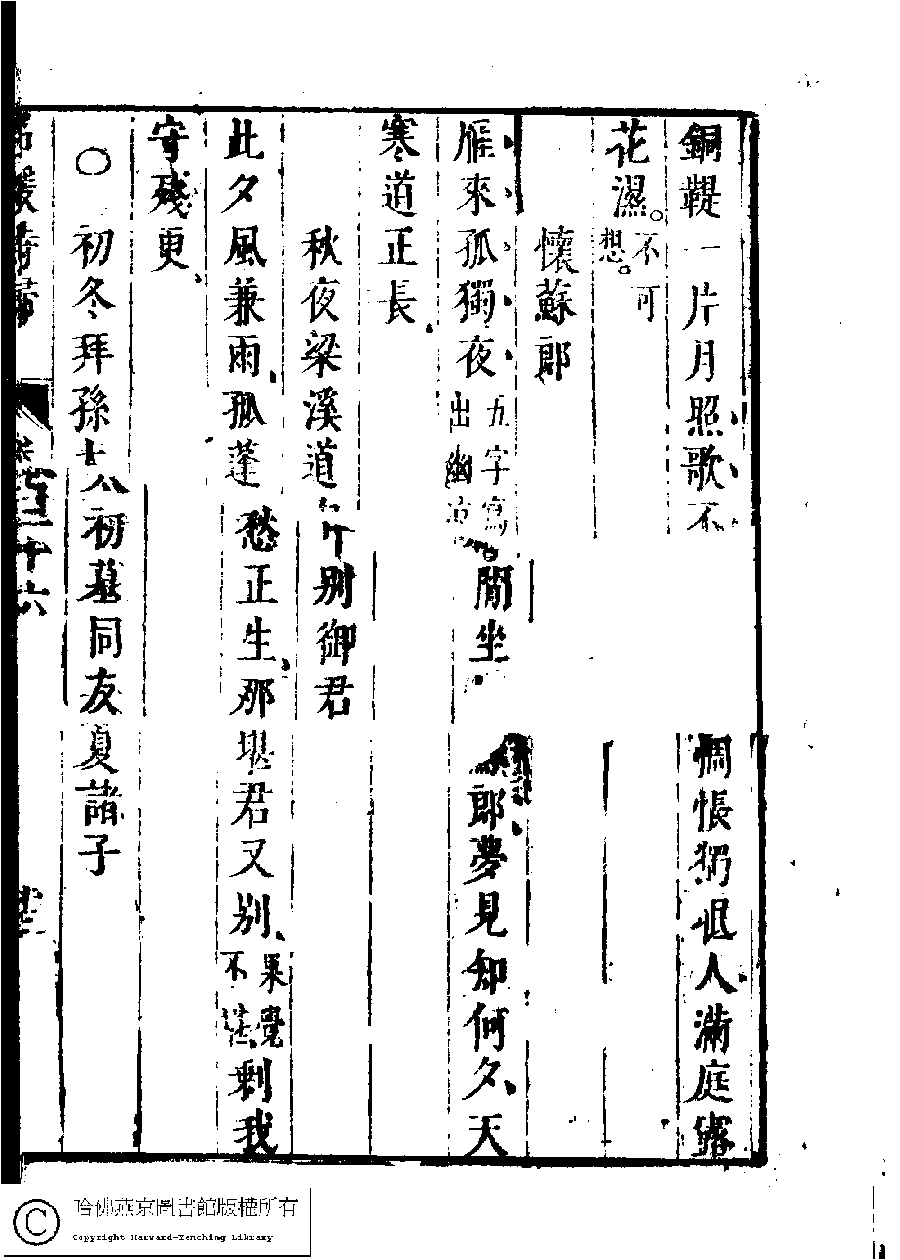 銅鞮一片月照歌不 惆悵猶 人滿庭露
花濕。不可想。
懷蘇郎
雁來孤獨夜五字寫出幽 閒坐 郎夢見知何夕天
寒道正長
秋夜梁溪道 別御君
此夕風兼雨孤蓬愁正生那堪君又別果覺不 剩我
守殘更
○初冬拜孫十八初墓同友夏諸子
名媛詩歸 三十六
哈佛燕京圖書館版權所有
Copyright Harvard-Yenching Library